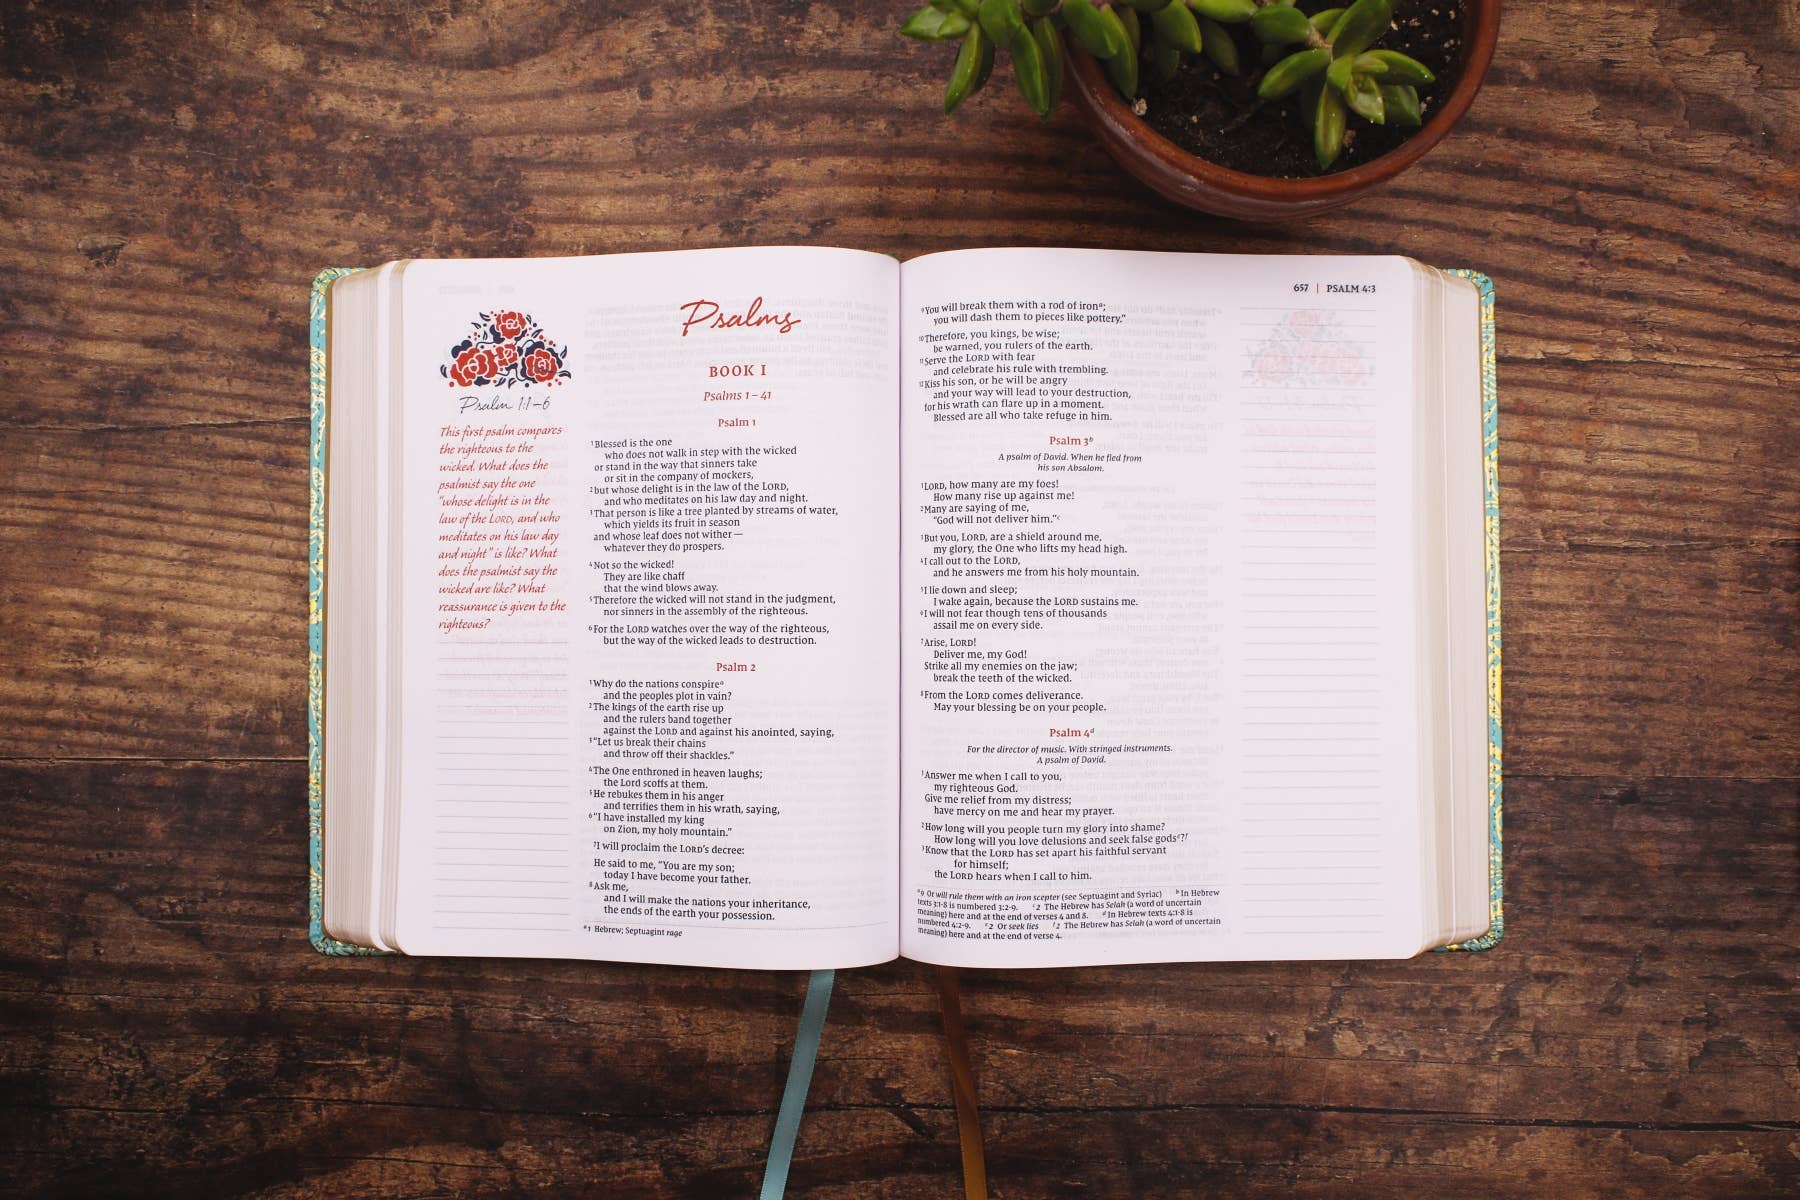 Psalm 1:1–6
This first psalm compares
the righteous to the
wicked. What does the
psalmist say the one
“whose delight is in the
law of the LORD, and who
meditates on his law day
and night” is like? What
does the psalmist say the
wicked are like? What
reassurance is given to the
righteous?
Psalms
BOOK I
Psalms 1–41
Psalm 1
1Blessed is the one
who does not walk in step with the wicked
or stand in the way that sinners take
or sit in the company of mockers,
2but whose delight is in the law of the LORD,
and who meditates on his law day and night.
3That person is like a tree planted by streams of water,
which yields its fruit in season
and whose leaf does not wither—
whatever they do prospers.
4Not so the wicked!
They are like chaff
that the wind blows away.
5Therefore the wicked will not stand in the judgment,
nor sinners in the assembly of the righteous.
6For the LORD watches over the way of the righteous,
but the way of the wicked leads to destruction.
Psalm 2
1Why do the nations conspirea
and the peoples plot in vain?
2The kings of the earth rise up
and the rulers band together
against the LORD and against his anointed, saying,
3“Let us break their chains
and throw off their shackles.”
4The One enthroned in heaven laughs;
the Lord scoffs at them.
5He rebukes them in his anger
and terrifies them in his wrath, saying,
6“I have installed my king
on Zion, my holy mountain.”
7I will proclaim the LORD’s decree:
He said to me, “You are my son;
today I have become your father.
8Ask me,
and I will make the nations your inheritance,
the ends of the earth your possession.
a1 Hebrew; Septuagint rage
657 | PSALM 4:3
9You will break them with a rod of irona;
you will dash them to pieces like pottery.”
10Therefore, you kings, be wise;
be warned, you rulers of the earth.
11Serve the LORD with fear
and celebrate his rule with trembling.
12Kiss his son, or he will be angry
and your way will lead to your destruction,
for his wrath can flare up in a moment.
Blessed are all who take refuge in him.
Psalm 3b
A psalm of David. When he fled from
his son Absalom.
1LORD, how many are my foes!
How many rise up against me!
2Many are saying of me,
“God will not deliver him.”c
3But you, LORD, are a shield around me,
my glory, the One who lifts my head high.
4I call out to the LORD,
and he answers me from his holy mountain.
5I lie down and sleep;
I wake again, because the LORD sustains me.
6I will not fear though tens of thousands
assail me on every side.
7Arise, LORD!
Deliver me, my God!
Strike all my enemies on the jaw;
break the teeth of the wicked.
8From the LORD comes deliverance.
May your blessing be on your people.
Psalm 4d
For the director of music. With stringed instruments.
A psalm of David.
1Answer me when I call to you,
my righteous God.
Give me relief from my distress;
have mercy on me and hear my prayer.
2How long will you people turn my glory into shame?
How long will you love delusions and seek false godse?f
3Know that the LORD has set apart his faithful servant
for himself;
the LORD hears when I call to him.
a9 Or will rule them with an iron scepter (see Septuagint and Syriac) b In Hebrew
texts 3:1-8 is numbered 3:2-9. c2 The Hebrew has Selah (a word of uncertain
meaning) here and at the end of verses 4 and 8. d In Hebrew texts 4:1-8 is
numbered 4:2-9. e2 Or seek lies f2 The Hebrew has Selah (a word of uncertain
meaning) here and at the end of verse 4.